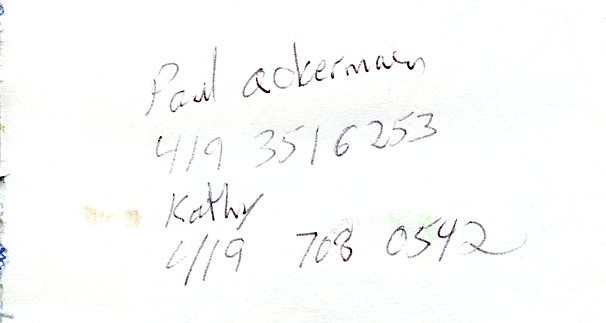 Paul Ackerman
419 351 6253
Kathy
419 708 0542